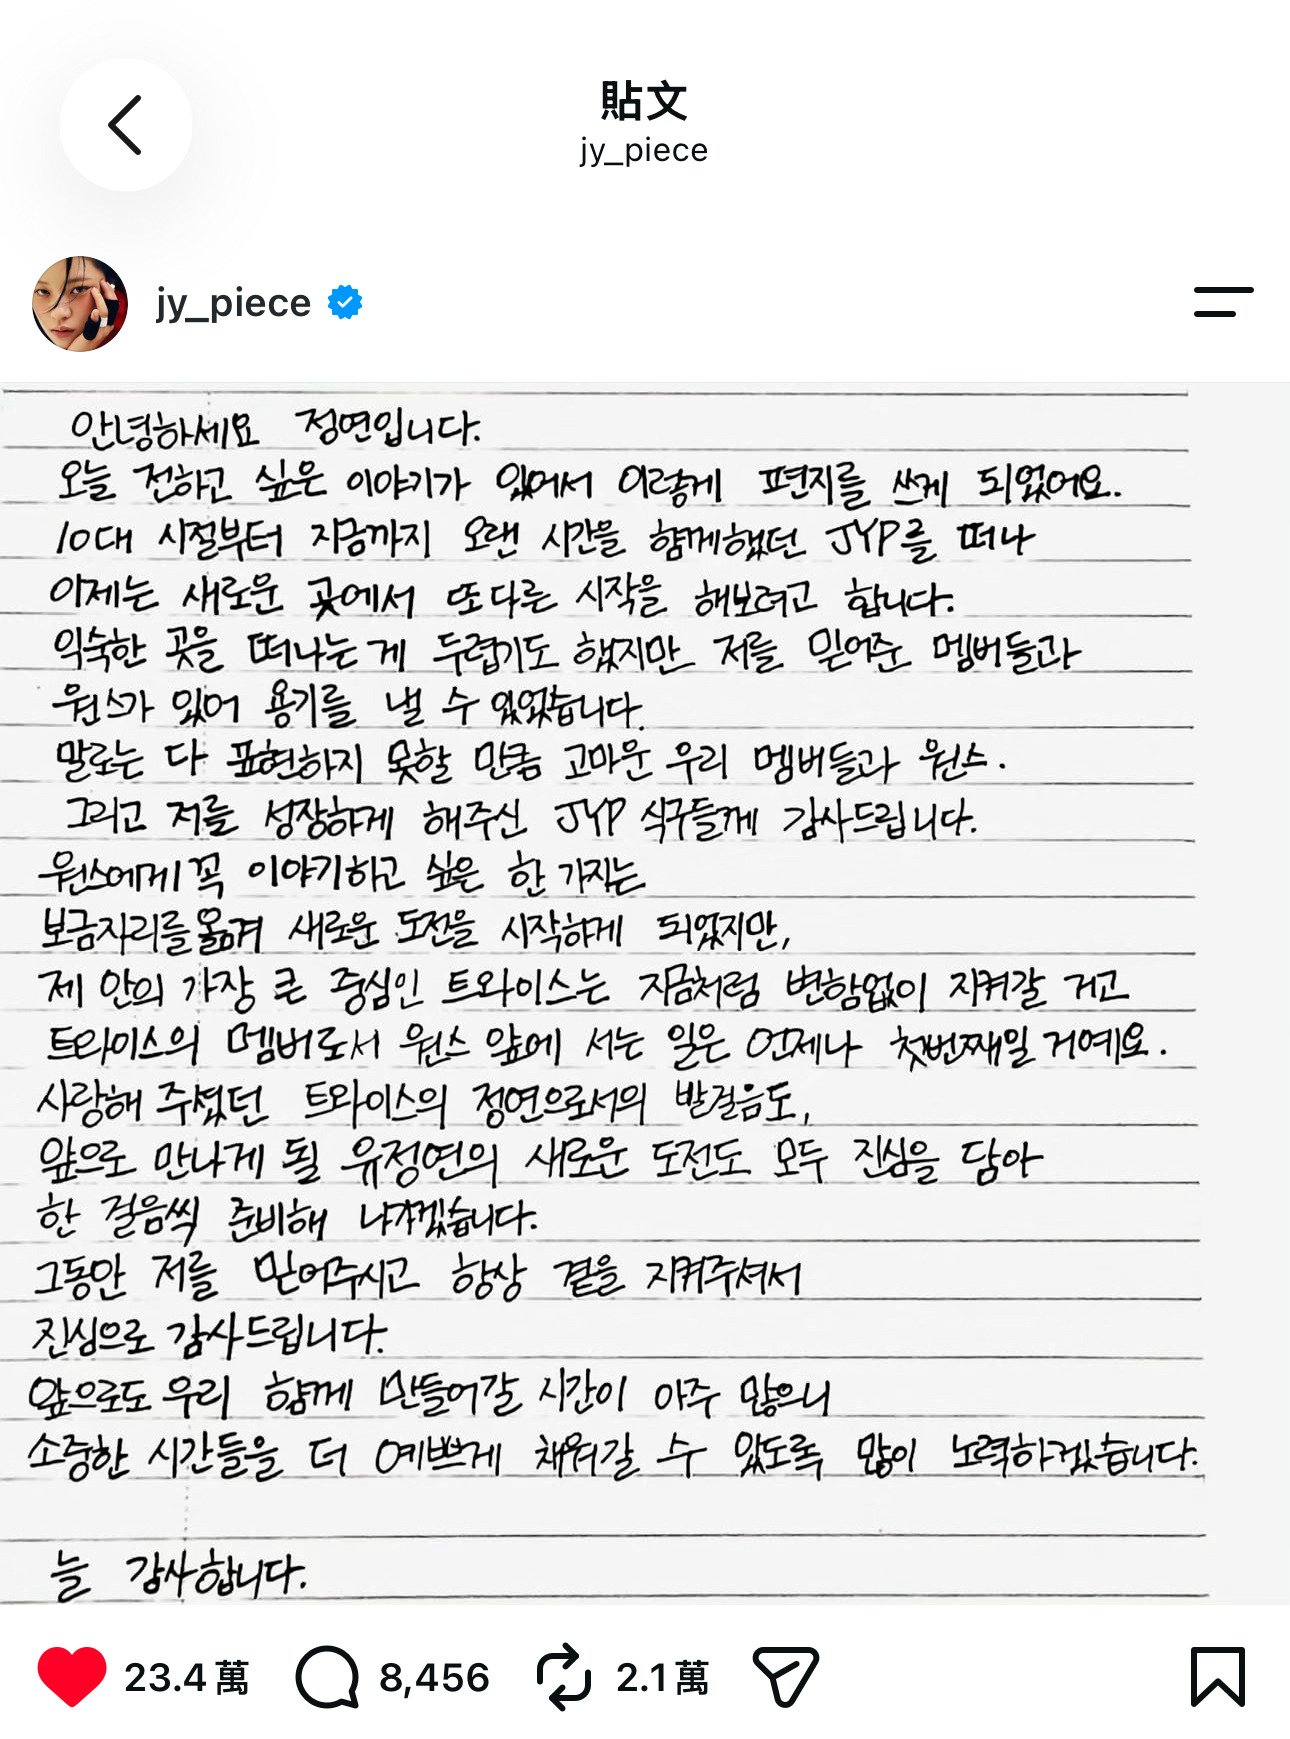 貼文
jy_piece
jy_piece
안녕하세요 정연입니다.
오늘 전하고 싶은 이야기가 있어서 이렇게 편지를 쓰게 되었어요.
10대 시절부터 지금까지 오랜 시간을 함께했던 JYP를 떠나
이제는 새로운 곳에서 또다른 시작을 해보려고 합니다.
익숙한 곳을 떠나는게 두렵기도 했지만 저를 믿어준 멤버들과
원스가 있어 용기를 낼 수 있었습니다.
말로는 다 표현하지 못할 만큼 고마운 우리 멤버들과 원스.
그리고 저를 성장하게 해주신 JYP 식구들께 감사드립니다.
원스에게 꼭 이야기하고 싶은 한 가지는
보금자리를 옮겨 새로운 도전을 시작하게 되었지만,
제 안의 가장 큰 중심인 트와이스는 지금처럼 변함없이 지켜갈 거고
트와이스의 멤버로서 원스 앞에 서는 일은 언제나 첫번째일 거예요.
사랑해 주셨던 트와이스의 정연으로서의 발걸음도,
앞으로 만나게 될 유정연의 새로운 도전도 모두 진심을 담아
한 걸음씩 준비해 나가겠습니다.
그동안 저를 믿어주시고 항상 곁을 지켜주셔서
진심으로 감사드립니다.
앞으로도 우리 함께 만들어갈 시간이 아주 많으니
소중한 시간들을 더 예쁘게 채워갈 수 있도록 많이 노력하겠습니다.
늘 감사합니다.
23.4萬 8,456 2.1萬